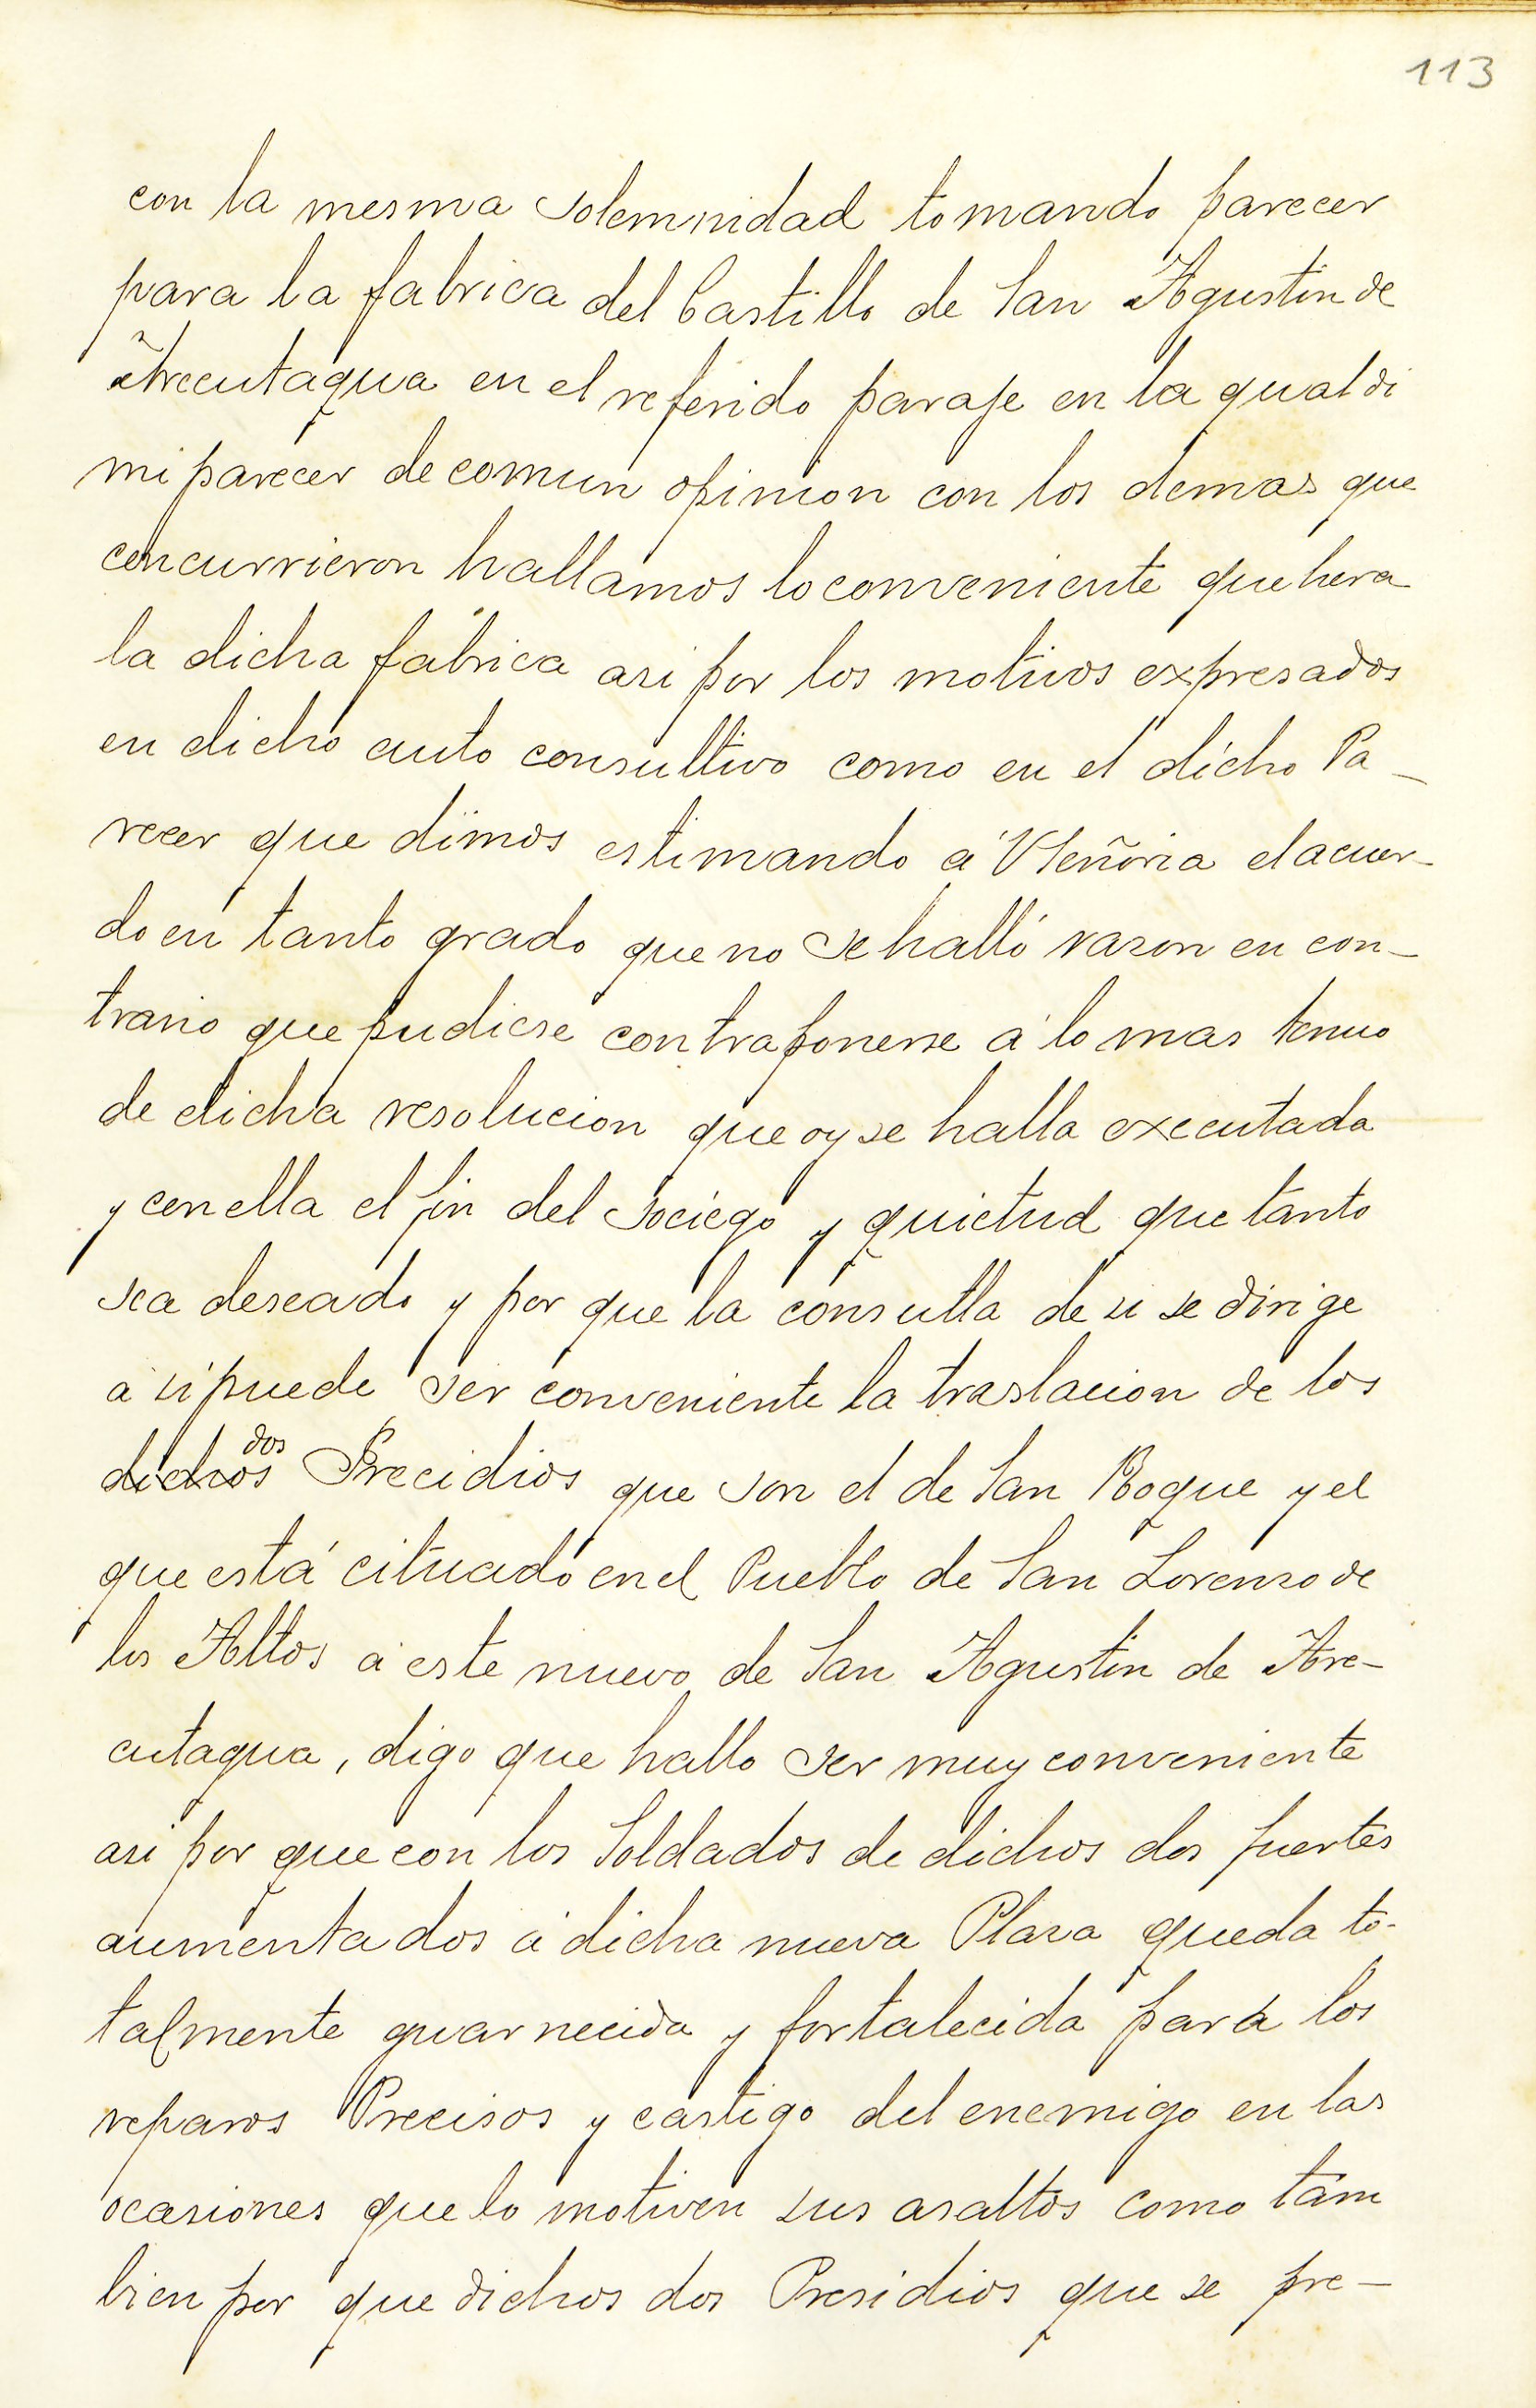 113
con la mesma solemnidad tomando parecer
para la fabrica del Castillo de San Agustin de
Arecutaqua en el referido paraje en la qual di
mi parecer de comun opinion con los demas que
concurrieron hallamos lo conveniente que hera
la dicha fabrica asi por los motivos expresados
en dicho auto consultivo como en el dicho Pa-
recer que dimos estimando á VSeñoria el acuer-
do en tanto grado que no se halló razon en con-
trario que pudiese contraponerse á lo mas tenuo
de dicha resolucion que oy se halla executada
y con ella el fin del sociego y quietud que tanto
sea deseado y por que la consulta de si se dirige
á si puede ser conveniente la traslacion de los
dichos dos Precidios que son el de San Roque y el
que está cituado en el Pueblo de San Lorenzo de
los Altos á este nuevo de San Agustin de Are-
cutaqua, digo que hallo ser muy conveniente
asi por que con los Soldados de dichos dos fuertes
aumentados á dicha nueva Plaza queda to-
talmente guarnecida y fortalecida para los
reparos Precisos y castigo del enemigo en las
ocasiones que lo motiven sus asaltos como tam
bien por que dichos dos Presidios que se pre-